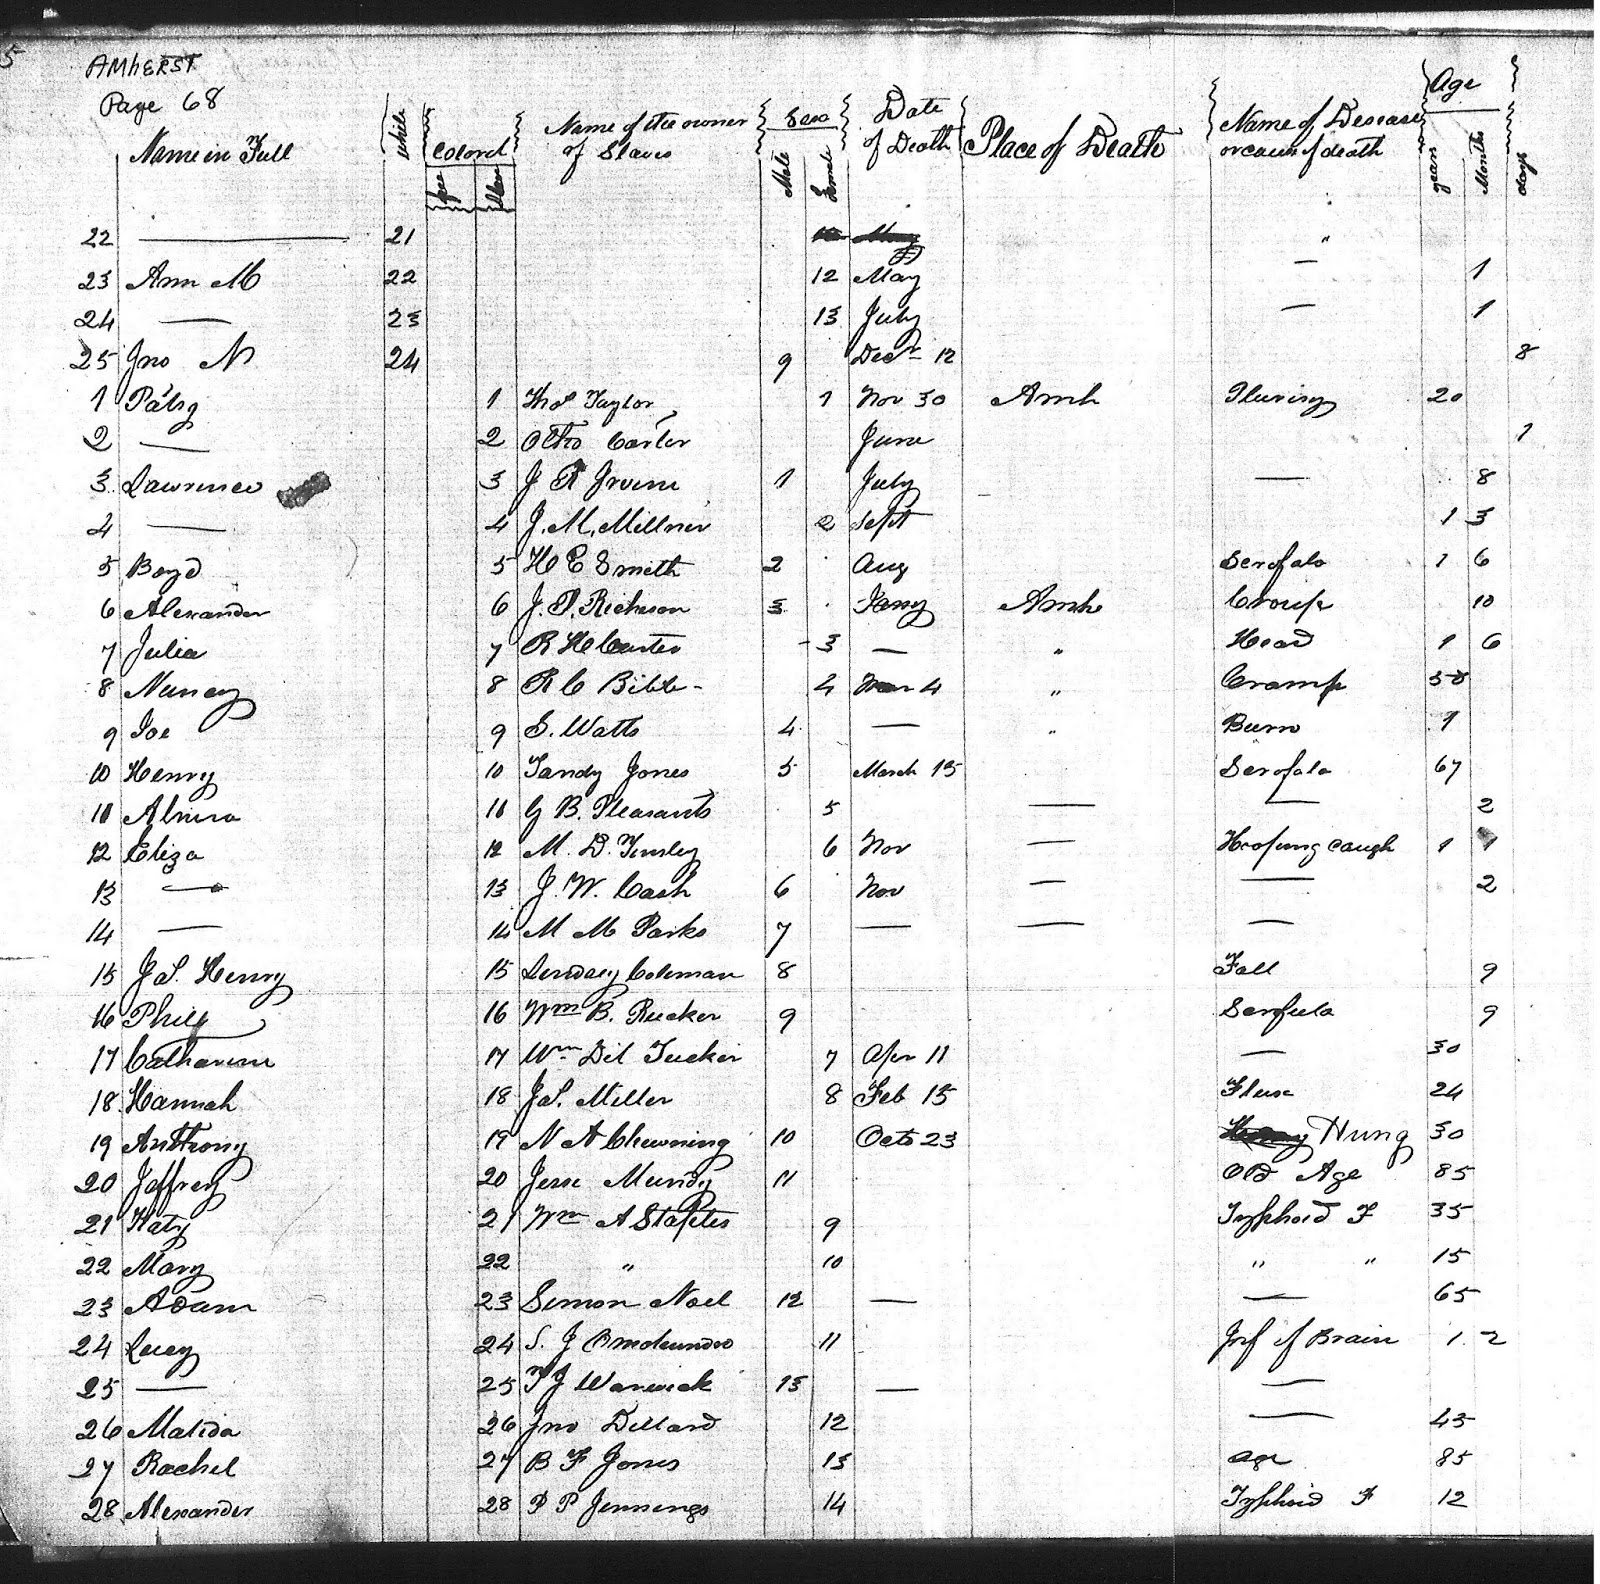 5
AMHERST
Page 68
Name in Full White Colored free slave Name of the owner of Slaves Sex Male Female Date of Death Place of Death Name of Desease or cause of death Age years Months days
22 — 21 "
23 Ann M 22 12 May — 1
24 — 23 13 July — 1
25 Jno N 24 9 Decr 12 8
1 Patsy 1 Thos Taylor 1 Nov 30 Amh Plurisy 20
2 — 2 Otho Carter June 1
3 Lawrence 3 J R Irvine 1 July — 8
4 — 4 J. M. Millner 2 Sept 1 3
5 Boyd 5 H E Smith 2 Aug Scrofala 1 6
6 Alexander 6 J. P. Richeson 3 Jany Amh Croup 10
7 Julia 7 R H Carter 3 — " Head 1 6
8 Nancy 8 R C Bibb - 4 4 " Cramp
9 Joe 9 S. Watts 4 — " Burn 1
10 Henry 10 Tandy Jones 5 March 15 Scrofala 67
11 Almira 11 G B. Pleasants 5 — — 2
12 Eliza 12 M. D. Tinsley 6 Nov — Hooping caugh 1 1
13 — 13 J. W. Cash 6 Nov — — 2
14 — 14 M M Parks 7 — — —
15 Js. Henry 15 Lindsey Coleman 8 Fall 9
16 Phill 16 Wm B. Rucker 9 Scrfula 9
17 Catharine 17 Wm Dil Tucker 7 Apr 11 — 30
18 Hannah 18 Js. Miller 8 Feb 15 Flux 24
19 Anthony 19 N A Chewning 10 Octo 23 Hung 30
20 Jeffrey 20 Jesse Mundy 11 Old Age 85
21 Katy 21 Wm A Staples 9 Typhoid F 35
22 Mary 22 " 10 " " 15
23 Adam 23 Simon Noel 12 — — 65
24 Lucy 24 S. J 11 Inf of Brain 1 2
25 — 25 T J Warwick 13 — —
26 Matilda 26 Jno Dillard 12 — 45
27 Rachel 27 B F Jones 13 age 85
28 Alexander 28 P P Jennings 14 Typhoid F 12